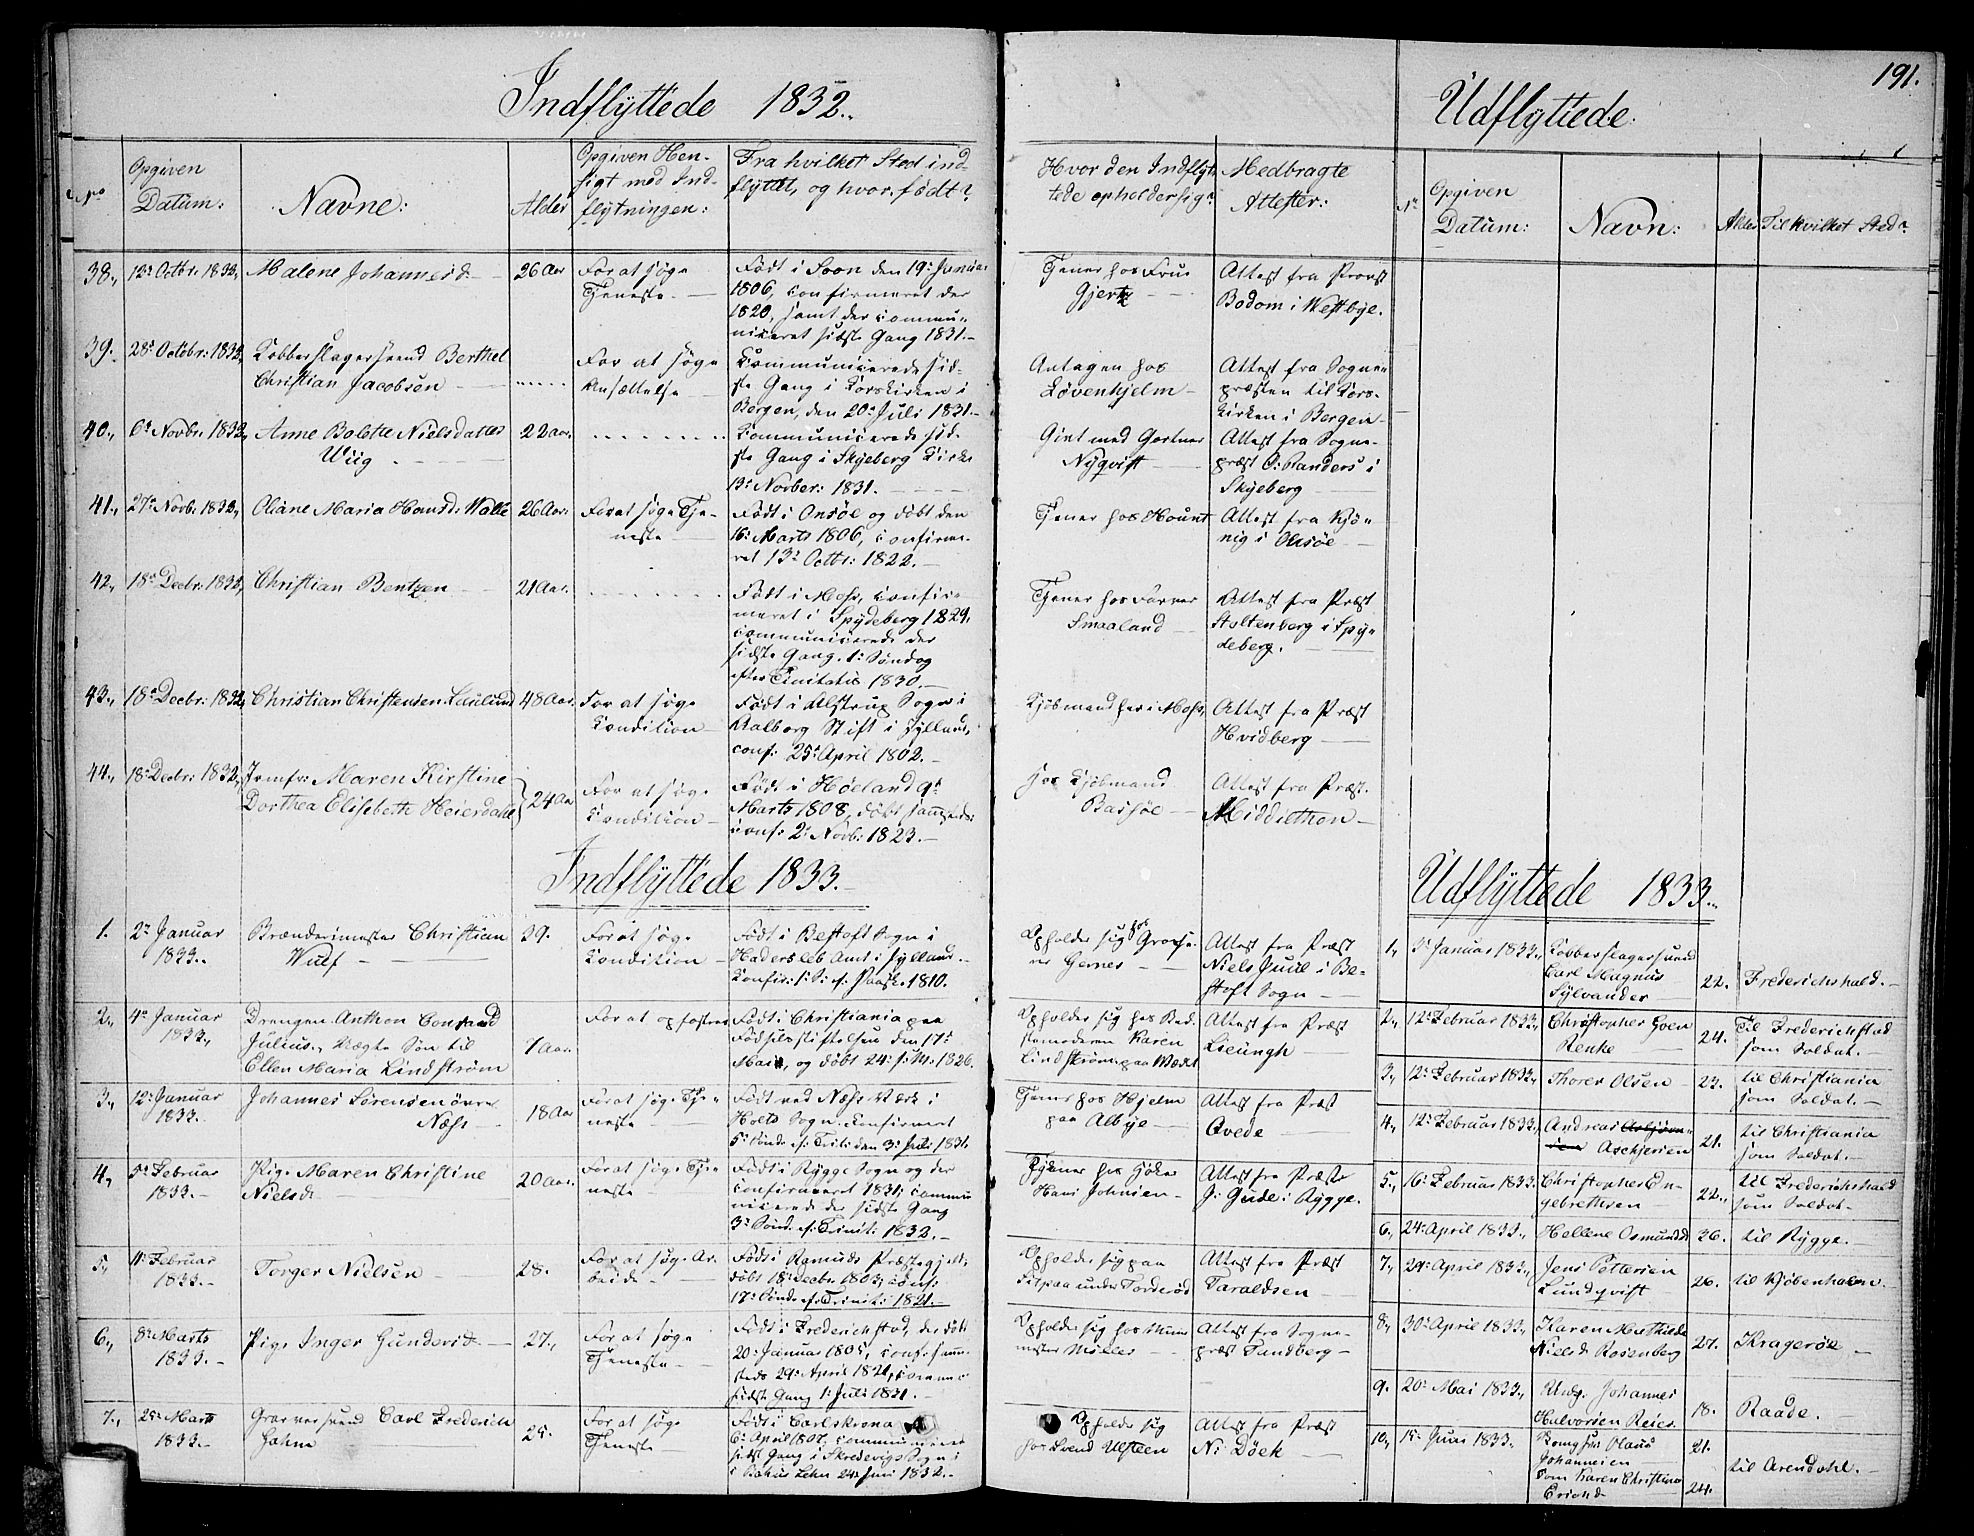 191.
Indflyttede 1832.
Udflyttede.
No
Opgiven
Datum:
Navne:
Alder
Opgiven Hen-
sigt med Ind-
flytningen:
Fra hvilket Sted ind-
flyttet, og hvor født?
Hvor den Indflyt
tede opholder sig?
Medbragte
Attester:
No
Opgiven
Datum:
Navn:
Alder
Til hvilket Sted?
38., 12te Octbr. 1832., Malene Johannesd. 26 Aar
For at søge
Tjeneste.
Født i Soon den 19de Januar
1806, confirmeret der
1820, samt der commu-
niceret sidste Gang 1831.
Tjener hos Frue
Gjertz
Attest fra Provst
Bodom i Westbye.
39. 28de Octobr: 1832., Kobberslagersvend Berthel
Christian Jacobsen
For at søge
Ansættelse
Communicerede sid-
ste Gang i Korskirken i
Bergen, den 20de Juli 1831.
Antagen hos
Løvenhjelm
Attest fra Sogne-
præsten til Kors-
kirken i Bergen
40., 6te Novbr. 1832, Anne Bolette Nielsdatter 22 Aar.
Wiig
Communicerede sid-
ste Gang i Skjeberg Kirke
13de Novber: 1831.
Gint med Gartner
Nyqvist
Attest fra Sogne-
præst O: Randers i
Skjeberg
41., 27de Novb. 1832., Oliane Maria Hansd. Walle 26 Aar.
For at søge Tje-
neste
Født i Onsøe og døbt den
16de Marts 1806, confirme-
ret 13de Octbr: 1822.
Tjener hos Hount
Attest fra Kjø-
nig i Onsøe
42., 18de Decbr: 1832, Christian Bentzen 21 Aar.
Født i Moss, confir-
meret i Spydeberg 1829,
communicerede der
sidste Gang 1ste Søndag
efter Trinitatis 1830.
Tjener hos Farver
Smaaland
Attest fra Præst
Stoltenberg i Spy-
deberg.
43., 18de Decbr: 1832, Christian Christensen Kaslund 48 Aar.
For at søge
Condition
Født i Alstrup Sogn i
Aalborg Stift i Jylland,
conf: 25de April 1802.
Kjøbmand her i Moss,
Attest fra Præst
Hvidberg
44., 18de Decbr: 1832., Jomfr: Maren Kirstine
Dorthea Elisabeth Heierdahl 24 Aar
For at søge
Condition
Født i Høeland 9de
Marts 1808, døbt sammesteds
conf: 2de Novb: 1823.
hos Kjøbmand
Bassøe
Attest fra Præst.
Middelthon
Indflyttede 1833.
Udflyttede 1833.
1. 2de Januar
1833.
Brænderimester Christian
Wulf
29.
For at søge
Condition
Født i Bestoft Sogn i
Haderslev Amt i Jylland.
Confir: 1. S: ef. Paaske 1810.
Opholder sig hos Grosse-
rer Gernes
Attest fra Præst
Niels Juul i Be-
stoft Sogn
2., 4de Januar
1833.,
Drengen Anthon Conrad
Julius, uægte Søn til
Ellen Maria Lindstrøm
7 Aar.
For at opfostres
Født i Christiania paa
Fødselsstiftelsen den 17de
Mai, og døbt 24de s: M: 1826.
Opholder sig hos Bed-
stemoderen Karen
Lindstrøm paa Værket
Attest fra Præst
Lieungh
3., 12te Januar
1833.
Johannes Sørensen øvre
Næss
18 Aar
For at søge Tje-
neste
Født ved Næss Værk i
Holts Sogn. Confirmeret
5te Sønd: ef. Trit: den 3de Juli 1831.
Tjener hos Hjelm
paa Albye
Attest fra Præst
Qvede
4., 5te Februar
1833.
Pige Maren Christine
Nielsd.
20 Aar.
For at søge Tje-
neste
Født i Rygge Sogn og der
confirmeret 1831; commu
nicerede der sidste Gang
3de Sønd. ef. Trinit: 1832.
Tjener hos Høker
Hans Johnsen
Attest fra Præst
J: Gude i Rygge.
5., 11te Februar
1833.
Torger Nielsen
28.
For at søge Ar-
beide
Født i Ramnæs Præstegjeld,
døbt 18de Decbr. 1803; conf:
17de Sønd. ef. Trinit: 1821.
Opholder sig paa
Fitpaa under Torderød
Attest fra Præst
Taraldsen
6., 8de Marts
1833.
Pige Inger Gundersd.
27.,
For at søge
Tjeneste
Født i Frederichstad, der døbt
20de Januar 1805, conf. samme-
steds 29de April 1821, comm:
sidste Gang 1ste Juli 1831.
Opholder sig hos Muur
mester Møller
Attest fra Sogne-
præst Tandberg
7., 25de Marts
1833.
Garversvend Carl Frederich
Hahne
25.
For at søge
Tjeneste
Født i Carlskrona
6te April 1807, communicerede
sidste Gang i Skredsvigs Sogn i
Bahus Lehn 24de Juni 1832.
Opholder sig
hos Svend Ulsteen
Attest fra Præst
N: Döek
1., 3de Januar 1833., Kobberslagersvend
Carl Magnus
Sylvander 22. Frederichshald.
2., 12te Februar 1833., Christopher Goen
Renke 24. Til Frederichstad
som Soldat.
3., 12te Februar 1833., Thorer Olsen 23. til Christiania
som Soldat.
4., 12te Februar 1833., Andreas
Aschjersen 21. til Christiania
som Soldat.
5., 16de Februar 1833. Christopher En-
gebrethsen 22., til Frederichshald
som Soldat.
6., 24de April 1833., Hellene Osmundsd. 36. til Rygge.
7., 24de April 1833., Jens Pettersen
Lundqvist 26. til Kjøbenhavn.
8., 30te April 1833., Karen Mathilde
Nielsd. Rosenberg 27. Kragerøe
9. 20de Mai 1833., Ung: Johannes
Halvorsen Reier 18. Raade.
10., 15de Juni 1833. Olaus
Johannesen 21.
Karen Christine
Ericsd. 24. til Arendahl.